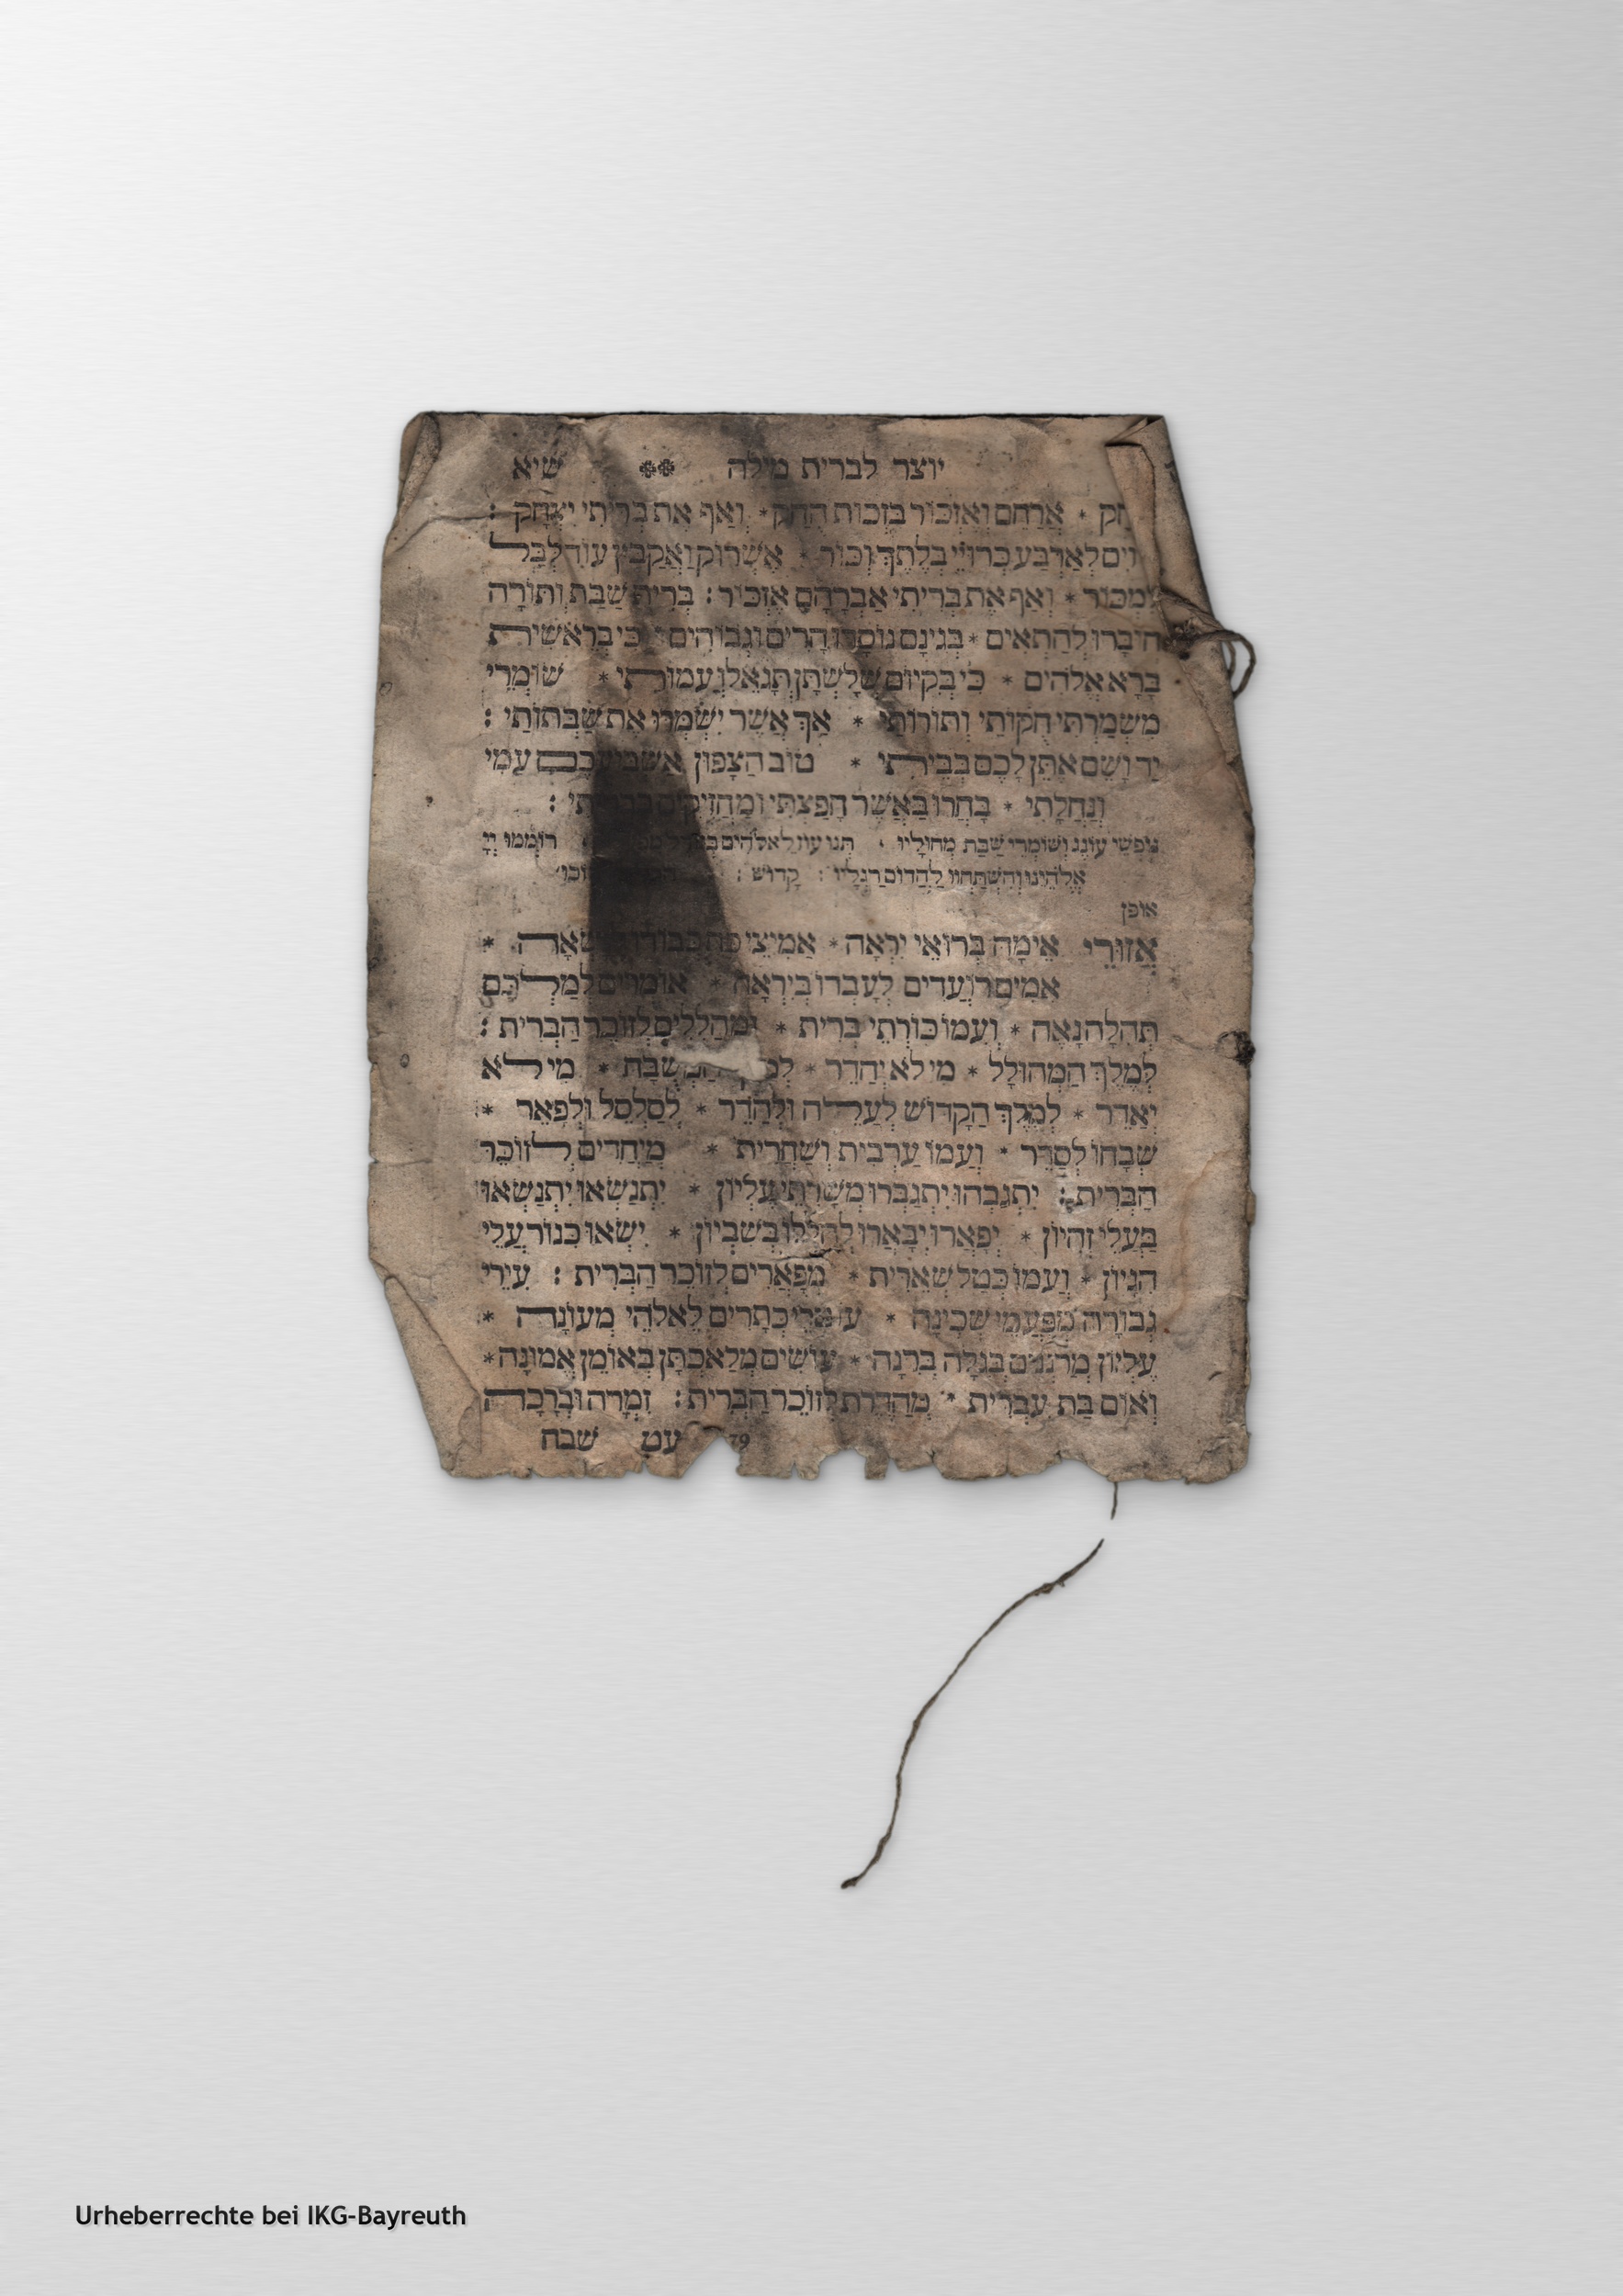 יוצר לברית מילה ** שיא
חק * אֲרַחֵם וְאֶזְכּוֹר בִּזְכוּת הֻחַק * וְאַף אֶת בְּרִיתִי יִצְחָק :
בְּלֶתֶךְ וְכוֹר * אֶשְׁרוֹק וַאֲקַבֵּץ עוֹד לְבַל
* וְאַף אֶת בְּרִיתִי אַבְרָהָם אֶזְכּוֹר : בְּרִית שַׁבָּת וְתוֹרָה
חִיבְּרוּ לְהַתְאִים * בְּגִינָם נוֹסָדוּ הָרִים וּגְבוֹהִים : כִּי בְרֵאשִׁית
בָּרָא אֱלֹהִים * כִּי בְקִיּוּם שְׁלָשְׁתָּן תִּגְאֲלוּ עֲמוּתִי * שׁוֹמְרֵי
מִשְׁמַרְתִּי חֻקּוֹתַי וְתוֹרוֹתַי * אַךְ אֲשֶׁר יִשְׁמְרוּ אֶת שַׁבְּתוֹתַי :
יָד וָשֵׁם אֶתֵּן לָכֶם בְּבֵיתִי * טוֹב הַצָּפוּן אַשְׂבִּיעֲכֶם עַמִּי
וְנַחֲלָתִי * בָּחֲרוּ בַּאֲשֶׁר חָפַצְתִּי וּמַחֲזִיקִים בִּבְרִיתִי :
נוֹפְשֵׁי עוֹנֶג וְשׁוֹמְרֵי שַׁבָּת מְחוּלָּיו * תְּנוּ עוֹז לֵאלֹהִים רוֹמְמוּ יְיָ
אֱלֹהֵינוּ וְהִשְׁתַּחֲווּ לַהֲדוֹם רַגְלָיו : קָדוֹשׁ :
אופן
אֲזוּרֵי אֵימָה בְּרוֹאֵי יִרְאָה * אַמִּיצֵי כֹחַ *
אֵמִים רוֹעֲדִים לְעָבְדוֹ בְּיִרְאָה * אוֹמְרִים לְמַלְכָּם
תְּהִלָּה נָאָה * וְעִמּוֹ כּוֹרְתֵי בְּרִית * וּמְהַלְלִים לְזוֹכֵר הַבְּרִית :
לְמֶלֶךְ הַמְהוּלָּל * מִי לֹא יְהַדֵּר * * מִי לֹא
יְאַדֵּר * לְמֶלֶךְ הַקָּדוֹשׁ לְעַלֵּה וּלְהַדֵּר * לְסַלְסֵל וּלְפָאֵר *
שְׁבָחוֹ לְסַדֵּר * וְעִמּוֹ עַרְבִית וְשַׁחֲרִית * מְיַחֲדִים לְזוֹכֵר
הַבְּרִית : יִתְגַּבְּהוּ יִתְגַּבְּרוּ מְשָׁרְתֵי עֶלְיוֹן * יִתְנַשְּׂאוּ יִתְנַשְּׂאוּ
בַּעֲלֵי זִהְיוֹן * יְפָאֲרוּ יְבָאֲרוּ לְהַלְלוֹ בְּשִׁבְיוֹן * יִשְׂאוּ כִּנּוֹר עֲלֵי
הִגָּיוֹן * וְעִמּוֹ כְּטַל שְׁאֵרִית * מְפָאֲרִים לְזוֹכֵר הַבְּרִית : עִירֵי
גְבוּרָה מִפַּעֲמֵי שְׁכִינָה * כְּתָרִים לֵאלֹהֵי מְעוֹנָה *
עֶלְיוֹן מְרַנְּנִים בְּגִלָּה בְּרִנָּה * עוֹשִׂים מְלַאכְתָּן בְּאוֹמֶן אֱמוּנָה *
וְאוֹם בַּת עִבְרִית * מְהַדֶּרֶת לְזוֹכֵר הַבְּרִית : זִמְרָה וּבְרָכָה
79 עט שבח
Urheberrechte bei IKG-Bayreuth